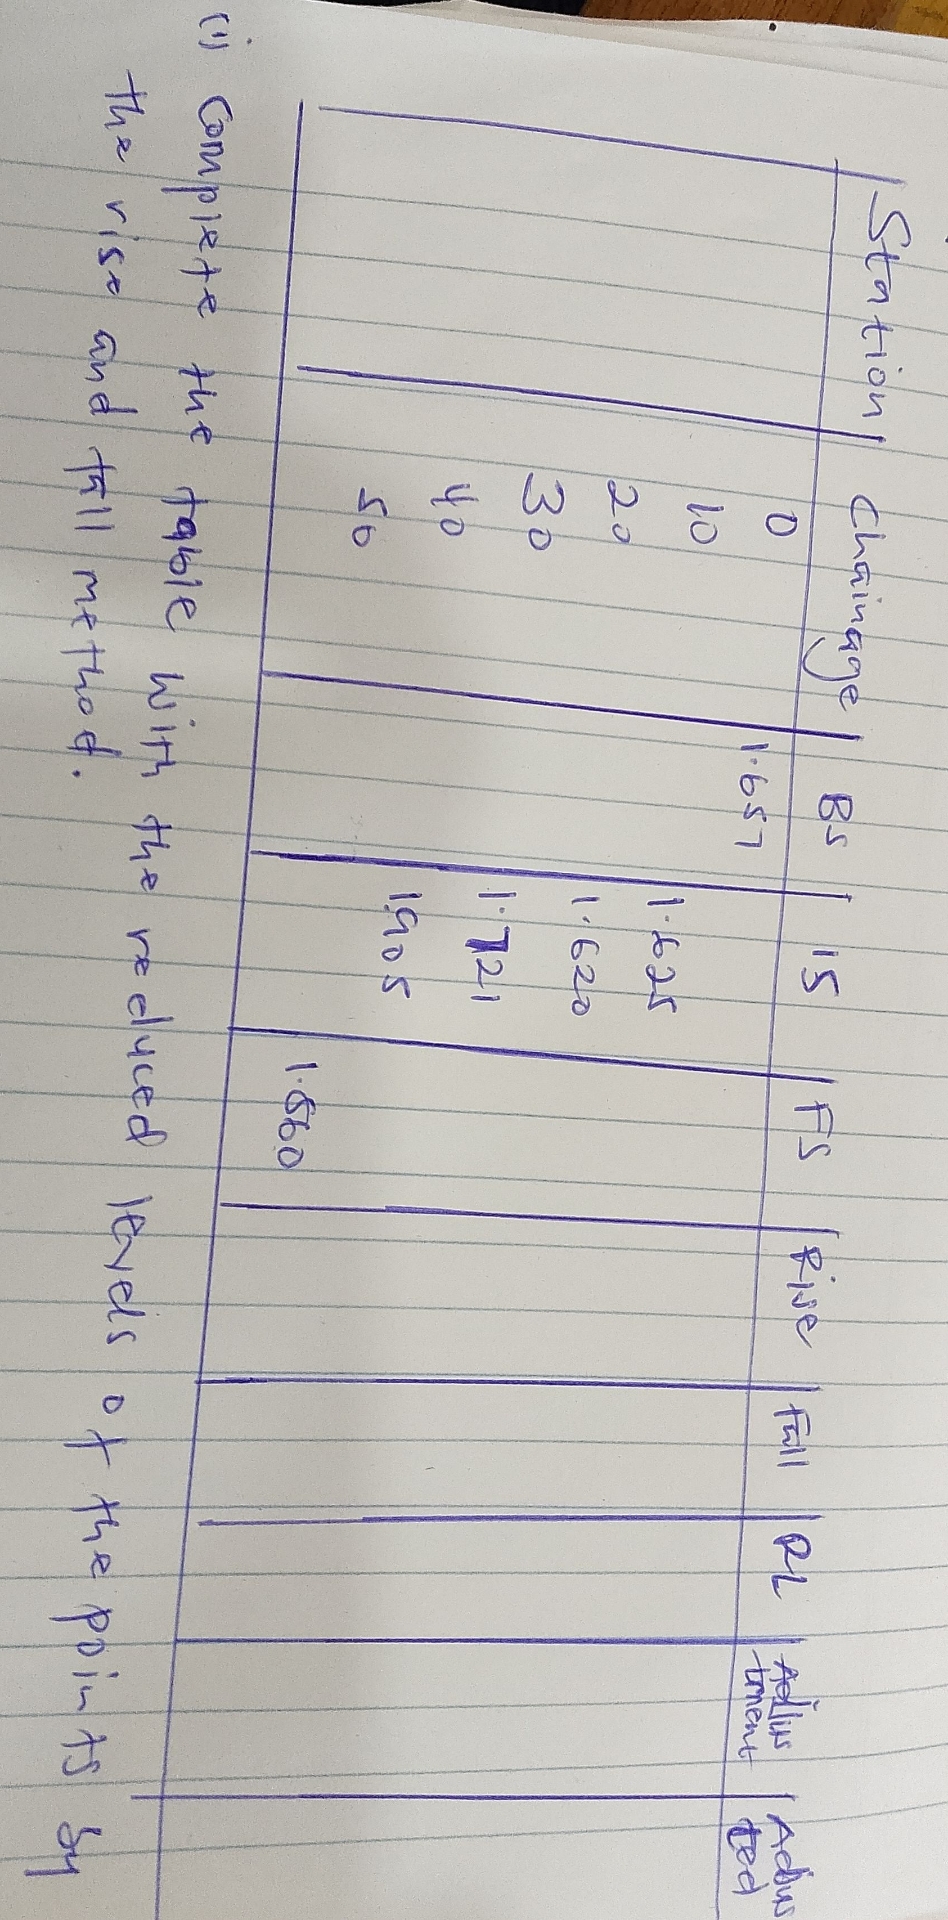 Station Chainage BS IS FS Rise Fall RL Adjus -tment Adjus ted
0 1.657
10 1.625
20 1.620
30 1.721
40 1.905
50 1.560
(i) Complete the table with the reduced levels of the points by
the rise and fall method.